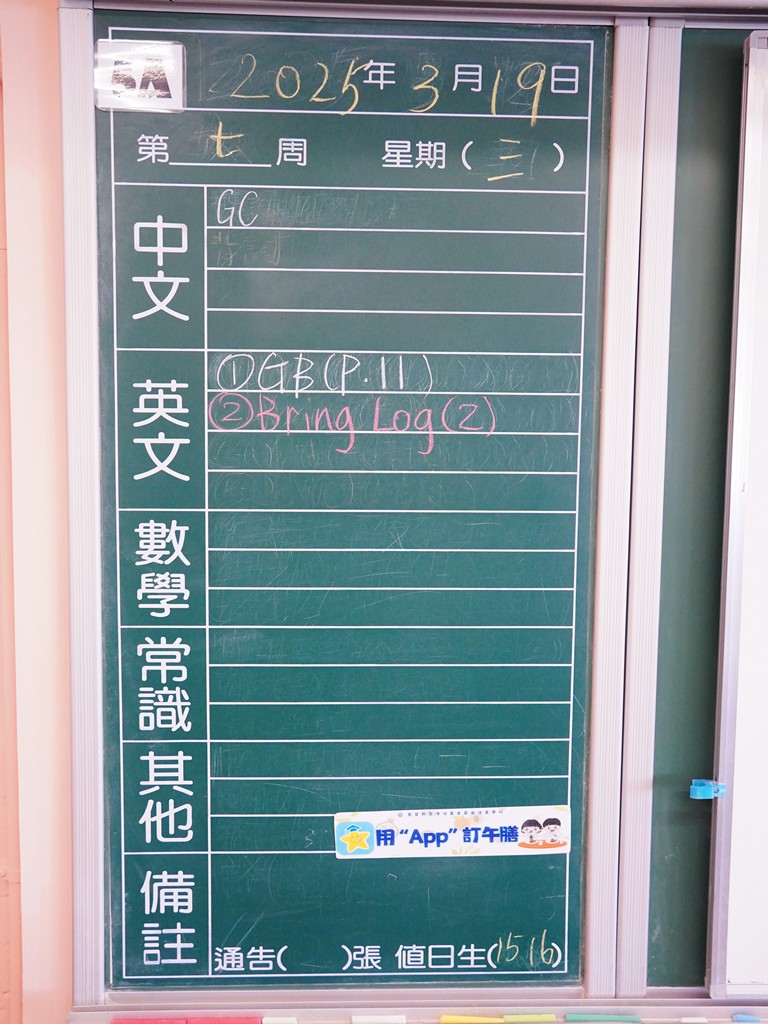 5A 2025年3月19日
第七周 星期(三)
中文
GC
英文
①GB(P.11)
②Bring Log(2)
數學
常識
其他
用 “App” 訂午膳
備註
通告( )張 值日生(15 16)